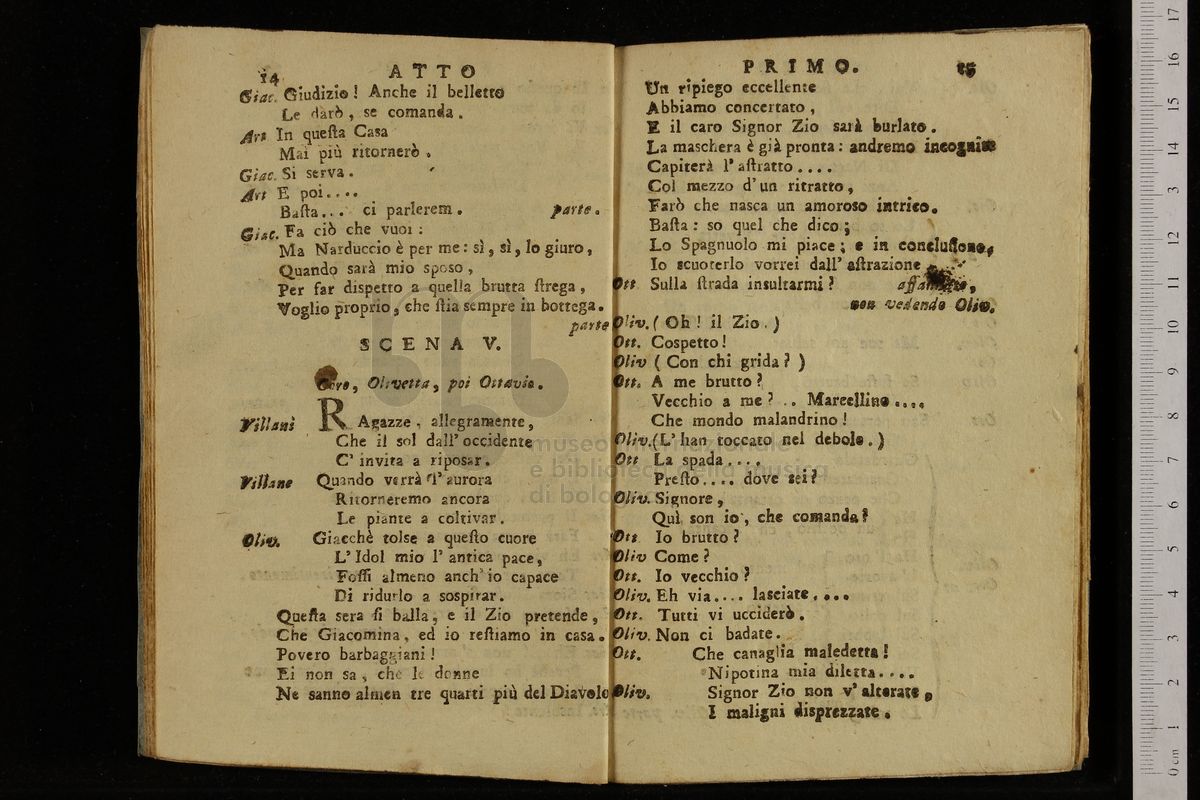 14 ATTO
Giac. Giudizio! Anche il belletto
Le darò, se comanda.
Art In questa Casa
Mai più ritornerò.
Giac. Si serva.
Art E poi....
Basta... ci parlerem. parte.
Giac. Fa ciò che vuoi:
Ma Narduccio è per me: sì, sì, lo giuro,
Quando sarà mio sposo,
Per far dispetto a quella brutta strega,
Voglio proprio, che stia sempre in bottega.
parte
SCENA V.
Coro, Olivetta, poi Ottavio.
Villani RAgazze, allegramente,
Che il sol dall' occidente
C' invita a riposar.
Villane Quando verrà l' aurora
Ritorneremo ancora
Le piante a coltivar.
Oliv. Giacchè tolse a questo cuore
L' Idol mio l' antica pace,
Fossi almeno anch' io capace
Di ridurlo a sospirar.
Questa sera si balla, e il Zio pretende,
Che Giacomina, ed io restiamo in casa.
Povero barbaggiani!
Ei non sa, che le donne
Ne sanno almen tre quarti più del Diavolo
PRIMO. 15
Un ripiego eccellente
Abbiamo concertato,
E il caro Signor Zio sarà burlato.
La maschera è già pronta: andremo incognite
Capiterà l' astratto....
Col mezzo d' un ritratto,
Farò che nasca un amoroso intrico.
Basta: so quel che dico;
Lo Spagnuolo mi piace; e in conclusione,
Io scuoterlo vorrei dall' astrazione
Ott Sulla strada insultarmi? affannato,
non vedendo Oliv.
Oliv. (Oh! il Zio.)
Ott. Cospetto!
Oliv (Con chi grida?)
Ott. A me brutto?
Vecchio a me?.. Marcellino....
Che mondo malandrino!
Oliv. (L' han toccato nel debole.)
Ott La spada....
Presto.... dove sei?
Oliv. Signore,
Quì son io, che comanda?
Ott. Io brutto?
Oliv Come?
Ott. Io vecchio?
Oliv. Eh via.... lasciate....
Ott. Tutti vi ucciderò.
Oliv. Non ci badate.
Ott. Che canaglia maledetta!
Nipotina mia diletta....
Oliv. Signor Zio non v' alterate,
I maligni disprezzate.
museo internazionale
e biblioteca della musica
di bologna